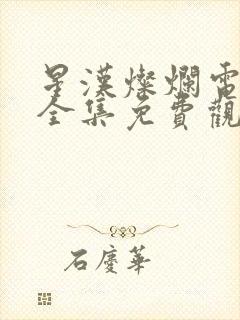 星漢燦爛電
全集免費觀
石慶華